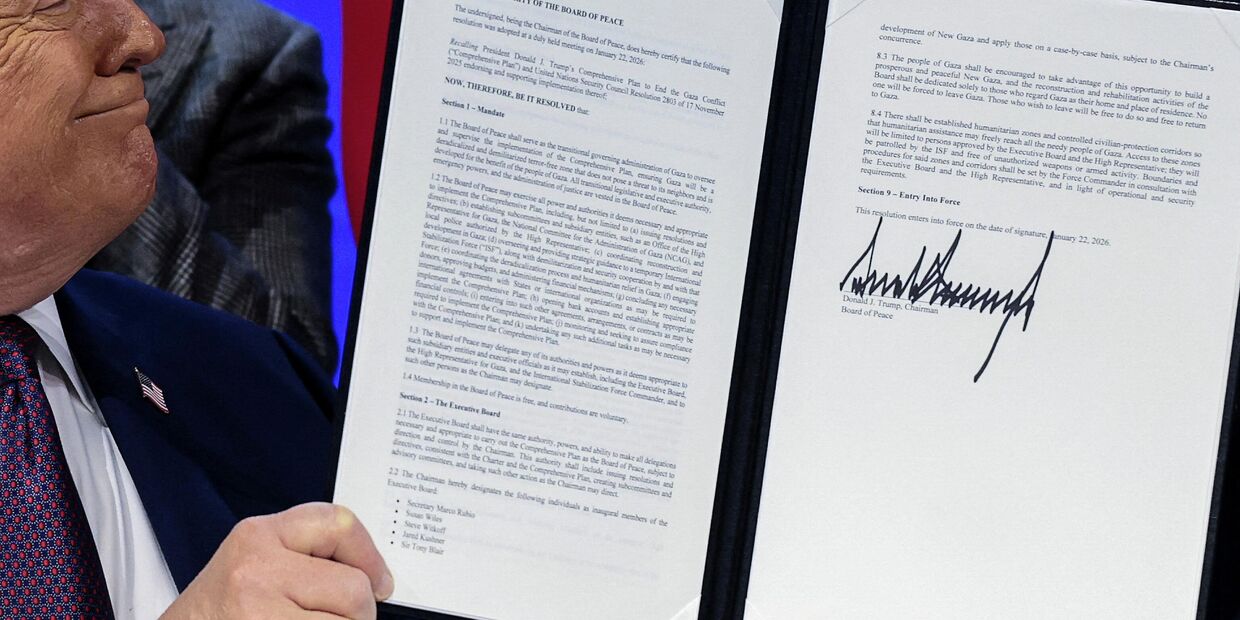 ITY OF THE BOARD OF PEACE
The undersigned, being the Chairman of the Board of Peace, does hereby certify that the following
resolution was adopted at a duly held meeting on January 22, 2026:
Recalling President Donald J. Trump's Comprehensive Plan to End the Gaza Conflict
("Comprehensive Plan") and United Nations Security Council Resolution 2803 of 17 November
2025 endorsing and supporting implementation thereof;
NOW, THEREFORE, BE IT RESOLVED that:
Section 1 – Mandate
1.1 The Board of Peace shall serve as the transitional governing administration of Gaza to oversee
and supervise the implementation of the Comprehensive Plan, ensuring Gaza will be a
deradicalized and demilitarized terror-free zone that does not pose a threat to its neighbors and is
developed for the benefit of the people of Gaza. All transitional legislative and executive authority,
emergency powers, and the administration of justice are vested in the Board of Peace.
1.2 The Board of Peace may exercise all power and authorities it deems necessary and appropriate
to implement the Comprehensive Plan, including, but not limited to (a) issuing resolutions and
directives; (b) establishing subcommittees and subsidiary entities, such as an Office of the High
Representative for Gaza, the National Committee for the Administration of Gaza (NCAG), and
local police authorized by the High Representative; (c) coordinating reconstruction and
development in Gaza; (d) overseeing and providing strategic guidance to a temporary International
Stabilization Force ("ISF"), along with demilitarization and security cooperation by and with that
Force; (e) coordinating the deradicalization process and humanitarian relief in Gaza; (f) engaging
donors, approving budgets, and administering financial mechanisms; (g) concluding any necessary
international agreements with States or international organizations as may be required to
implement the Comprehensive Plan; (h) opening bank accounts and establishing appropriate
financial controls; (i) entering into such other agreements, arrangements, or contracts as may be
required to implement the Comprehensive Plan; (j) monitoring and seeking to assure compliance
with the Comprehensive Plan; and (k) undertaking any such additional tasks as may be necessary
to support and implement the Comprehensive Plan.
1.3 The Board of Peace may delegate any of its authorities and powers as it deems appropriate to
such subsidiary entities and executive officials as it may establish, including the Executive Board,
the High Representative for Gaza, and the International Stabilization Force Commander, and to
such other persons as the Chairman may designate.
1.4 Membership in the Board of Peace is free, and contributions are voluntary.
Section 2 – The Executive Board
2.1 The Executive Board shall have the same authority, powers, and ability to make all delegations
necessary and appropriate to carry out the Comprehensive Plan as the Board of Peace, subject to
direction and control by the Chairman. This authority shall include issuing resolutions and
directives, consistent with the Charter and the Comprehensive Plan, creating subcommittees and
advisory committees, and taking such other action as the Chairman may direct.
2.2 The Chairman hereby designates the following individuals as inaugural members of the
Executive Board:
• Secretary Marco Rubio
• Susan Wiles
• Steve Witkoff
• Jared Kushner
• Sir Tony Blair
development of New Gaza and apply those on a case-by-case basis, subject to the Chairman's
concurrence.
8.3 The people of Gaza shall be encouraged to take advantage of this opportunity to build a
prosperous and peaceful New Gaza, and the reconstruction and rehabilitation activities of the
Board shall be dedicated solely to those who regard Gaza as their home and place of residence. No
one will be forced to leave Gaza. Those who wish to leave will be free to do so and free to return
to Gaza.
8.4 There shall be established humanitarian zones and controlled civilian-protection corridors so
that humanitarian assistance may freely reach all the needy people of Gaza. Access to these zones
will be limited to persons approved by the Executive Board and the High Representative; they will
be patrolled by the ISF and free of unauthorized weapons or armed activity. Boundaries and
procedures for said zones and corridors shall be set by the Force Commander in consultation with
the Executive Board and the High Representative, and in light of operational and security
requirements.
Section 9 – Entry Into Force
This resolution enters into force on the date of signature, January 22, 2026.
Donald J. Trump, Chairman
Board of Peace